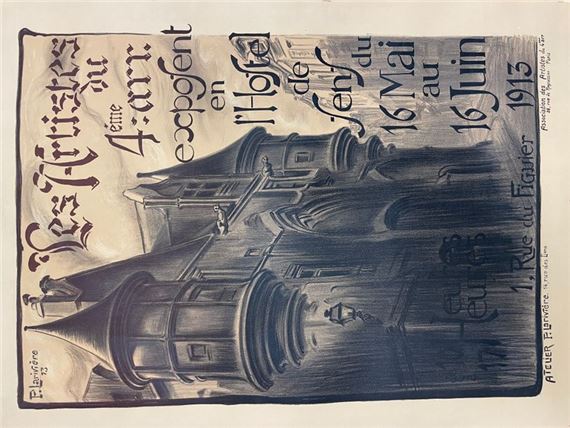 P. Larivière
13
Les Artistes
du
4ème arr:
expoſent
en
l'Hoſtel
de
ſens
du
16 Mai
au
16 Juin
1913
Heures
1, Rue du Figuier
ATELIER P. Larivière. 14, rue des
Association des Artistes du 4e arr
Paris